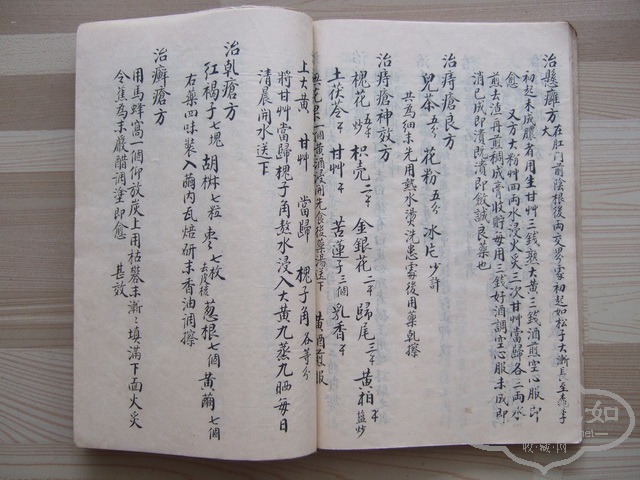 治懸癰方 在肛門前陰根後兩交界處初起如松子大漸長至桃李大
初起未成膿者用生甘艸三錢熟大黃三錢酒煎空心服即
愈 又方大粉艸四兩水浸火炙三次甘艸當歸各三兩水
煎去渣再煎稠成膏收貯每用三錢好酒調空心服未成即
消已成即潰既潰即斂誠良藥也
治痔瘡良方
兒茶五分 花粉五分 冰片少許
共為細末先用熱水燙洗患處後用藥乾擦
治痔瘡神放方
槐花 炒 枳壳 金銀花 歸尾 黃柏 盐炒
土茯苓 甘艸 苦蓮子三個 乳香
黃酒煎服
上大黃 甘艸 當歸 槐子角各等分
將甘艸當歸槐子角熬水浸入大黃九蒸九晒每日
清晨開水送下
治乳瘡方
紅褐子七塊 胡椒七粒 棗七枚去皮核 葱根七個 黃蘭七個
右藥四味裝入蘭內瓦焙研末香油調擦
治癬瘡方
用馬蜂窩一個仰放炭上用枯礬末漸漸填滿下面火炙
令焦為末嚴醋調塗即愈 甚效
收·藏·网